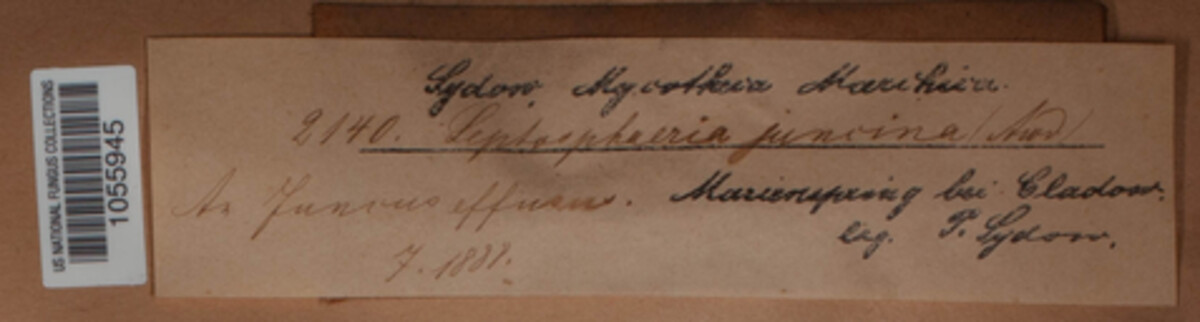 US NATIONAL FUNGUS COLLECTIONS
1055945
Sydow, Mycotheca Marchica.
2140. Leptosphaeria juncina (Awd)
An Juncus effusus. Marienspring bei Cladow.
7. 1887. leg. P. Sydow.